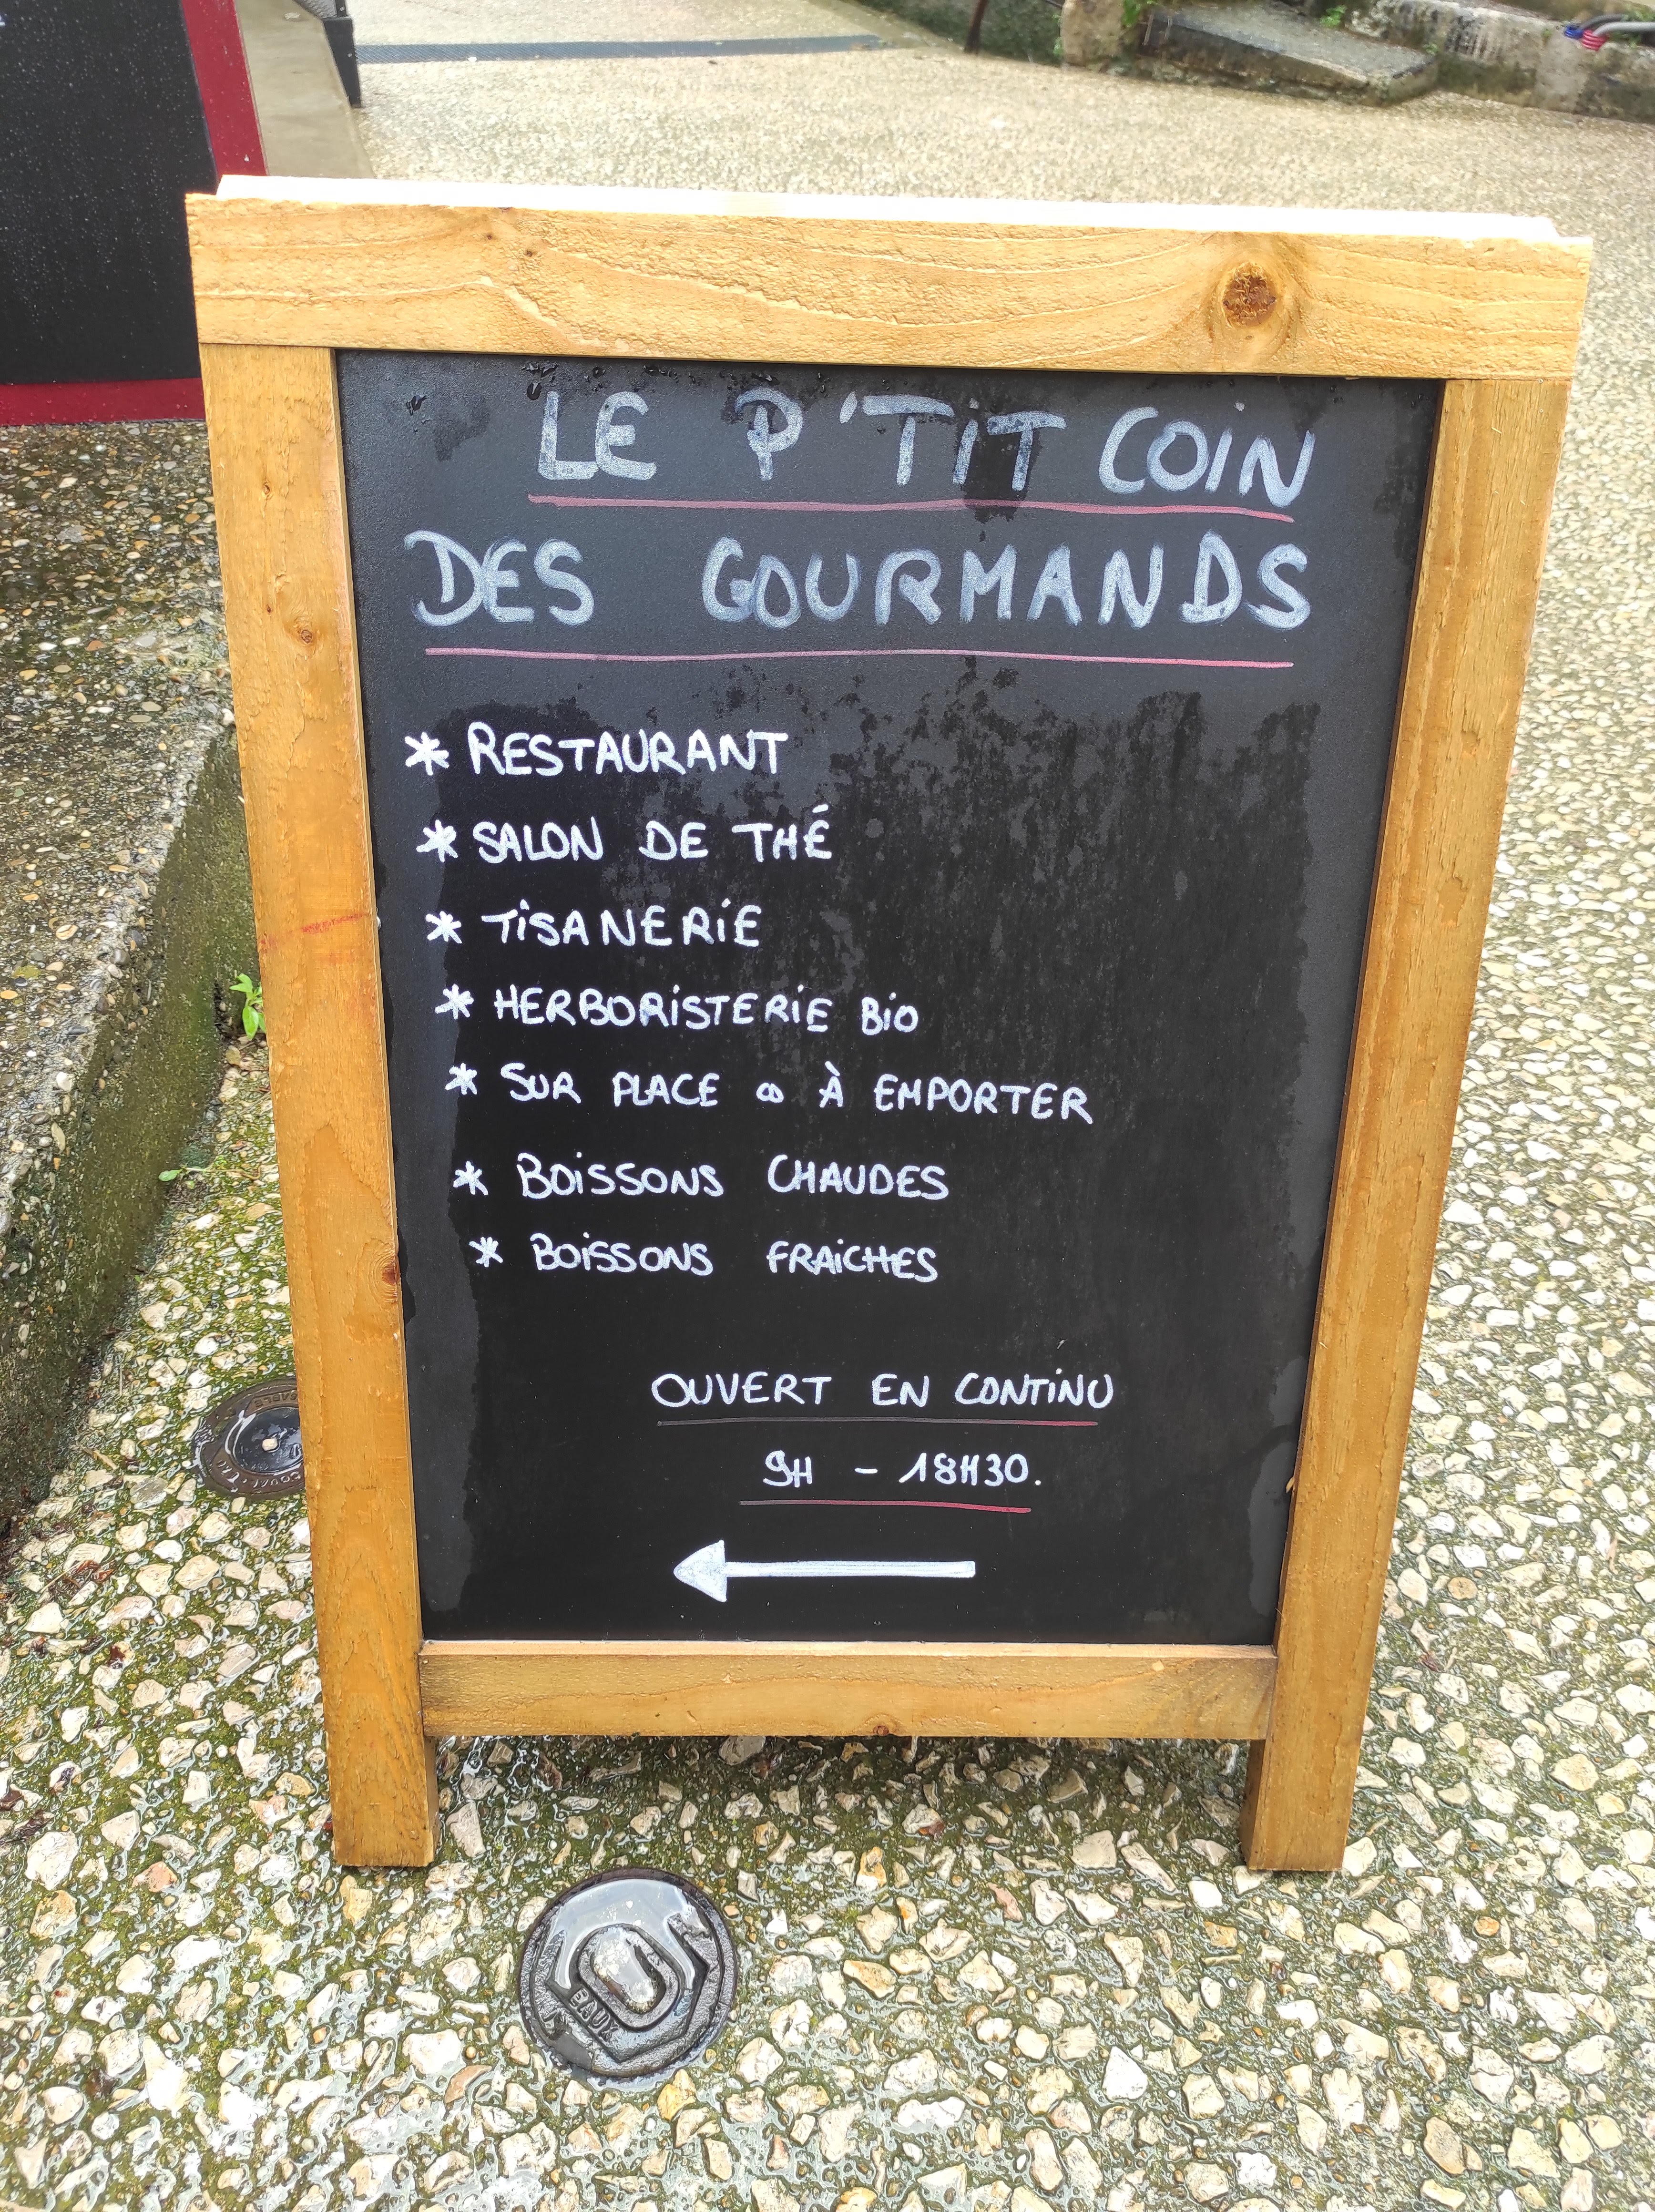 LE P'TiT COIN
DES GOURMANDS
* RESTAURANT
* SALON DE THÉ
* TiSANERiE
* HERBORiSTERiE BiO
* SUR PLACE ∞ À EMPORTER
* BOiSSONS CHAUDES
* BOiSSONS FRAiCHES
OUVERT EN CONTiNU
9H - 18H30.
EAUX